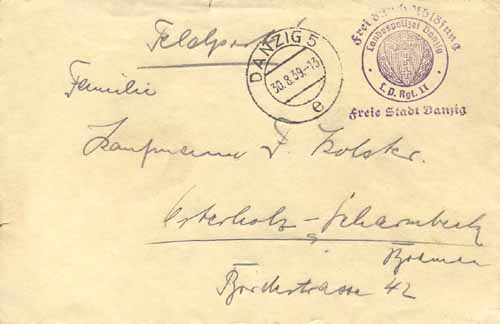 Feldpost!
DANZIG 5
30.8.39.-13
e
Frei durch Ablösung
Landespolizei Danzig
L.P. Rgt. II
Freie Stadt Danzig
Familie
Kaufmann
Osterholz-Scharmbeck
Bremen
42